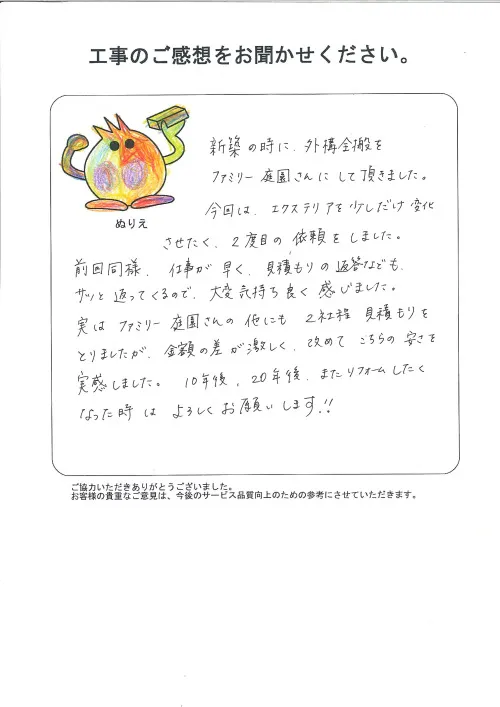 工事のご感想をお聞かせください。
新築の時に、外構全般を
ファミリー庭園さんにして頂きました。
今回は、エクステリアを少しだけ変化
させたく、2度目の依頼をしました。
ぬりえ
前回同様、仕事が早く、見積もりの返答なども、
サッと返ってくるので、大変気持ち良く感じました。
実はファミリー庭園さんの他にも2社程見積もりを
とりましたが、金額の差が激しく、改めてこちらの安さを
実感しました。10年後、20年後、またリフォームしたく
なった時はよろしくお願いします!!
ご協力いただきありがとうございました。
お客様の貴重なご意見は、今後のサービス品質向上のための参考にさせていただきます。